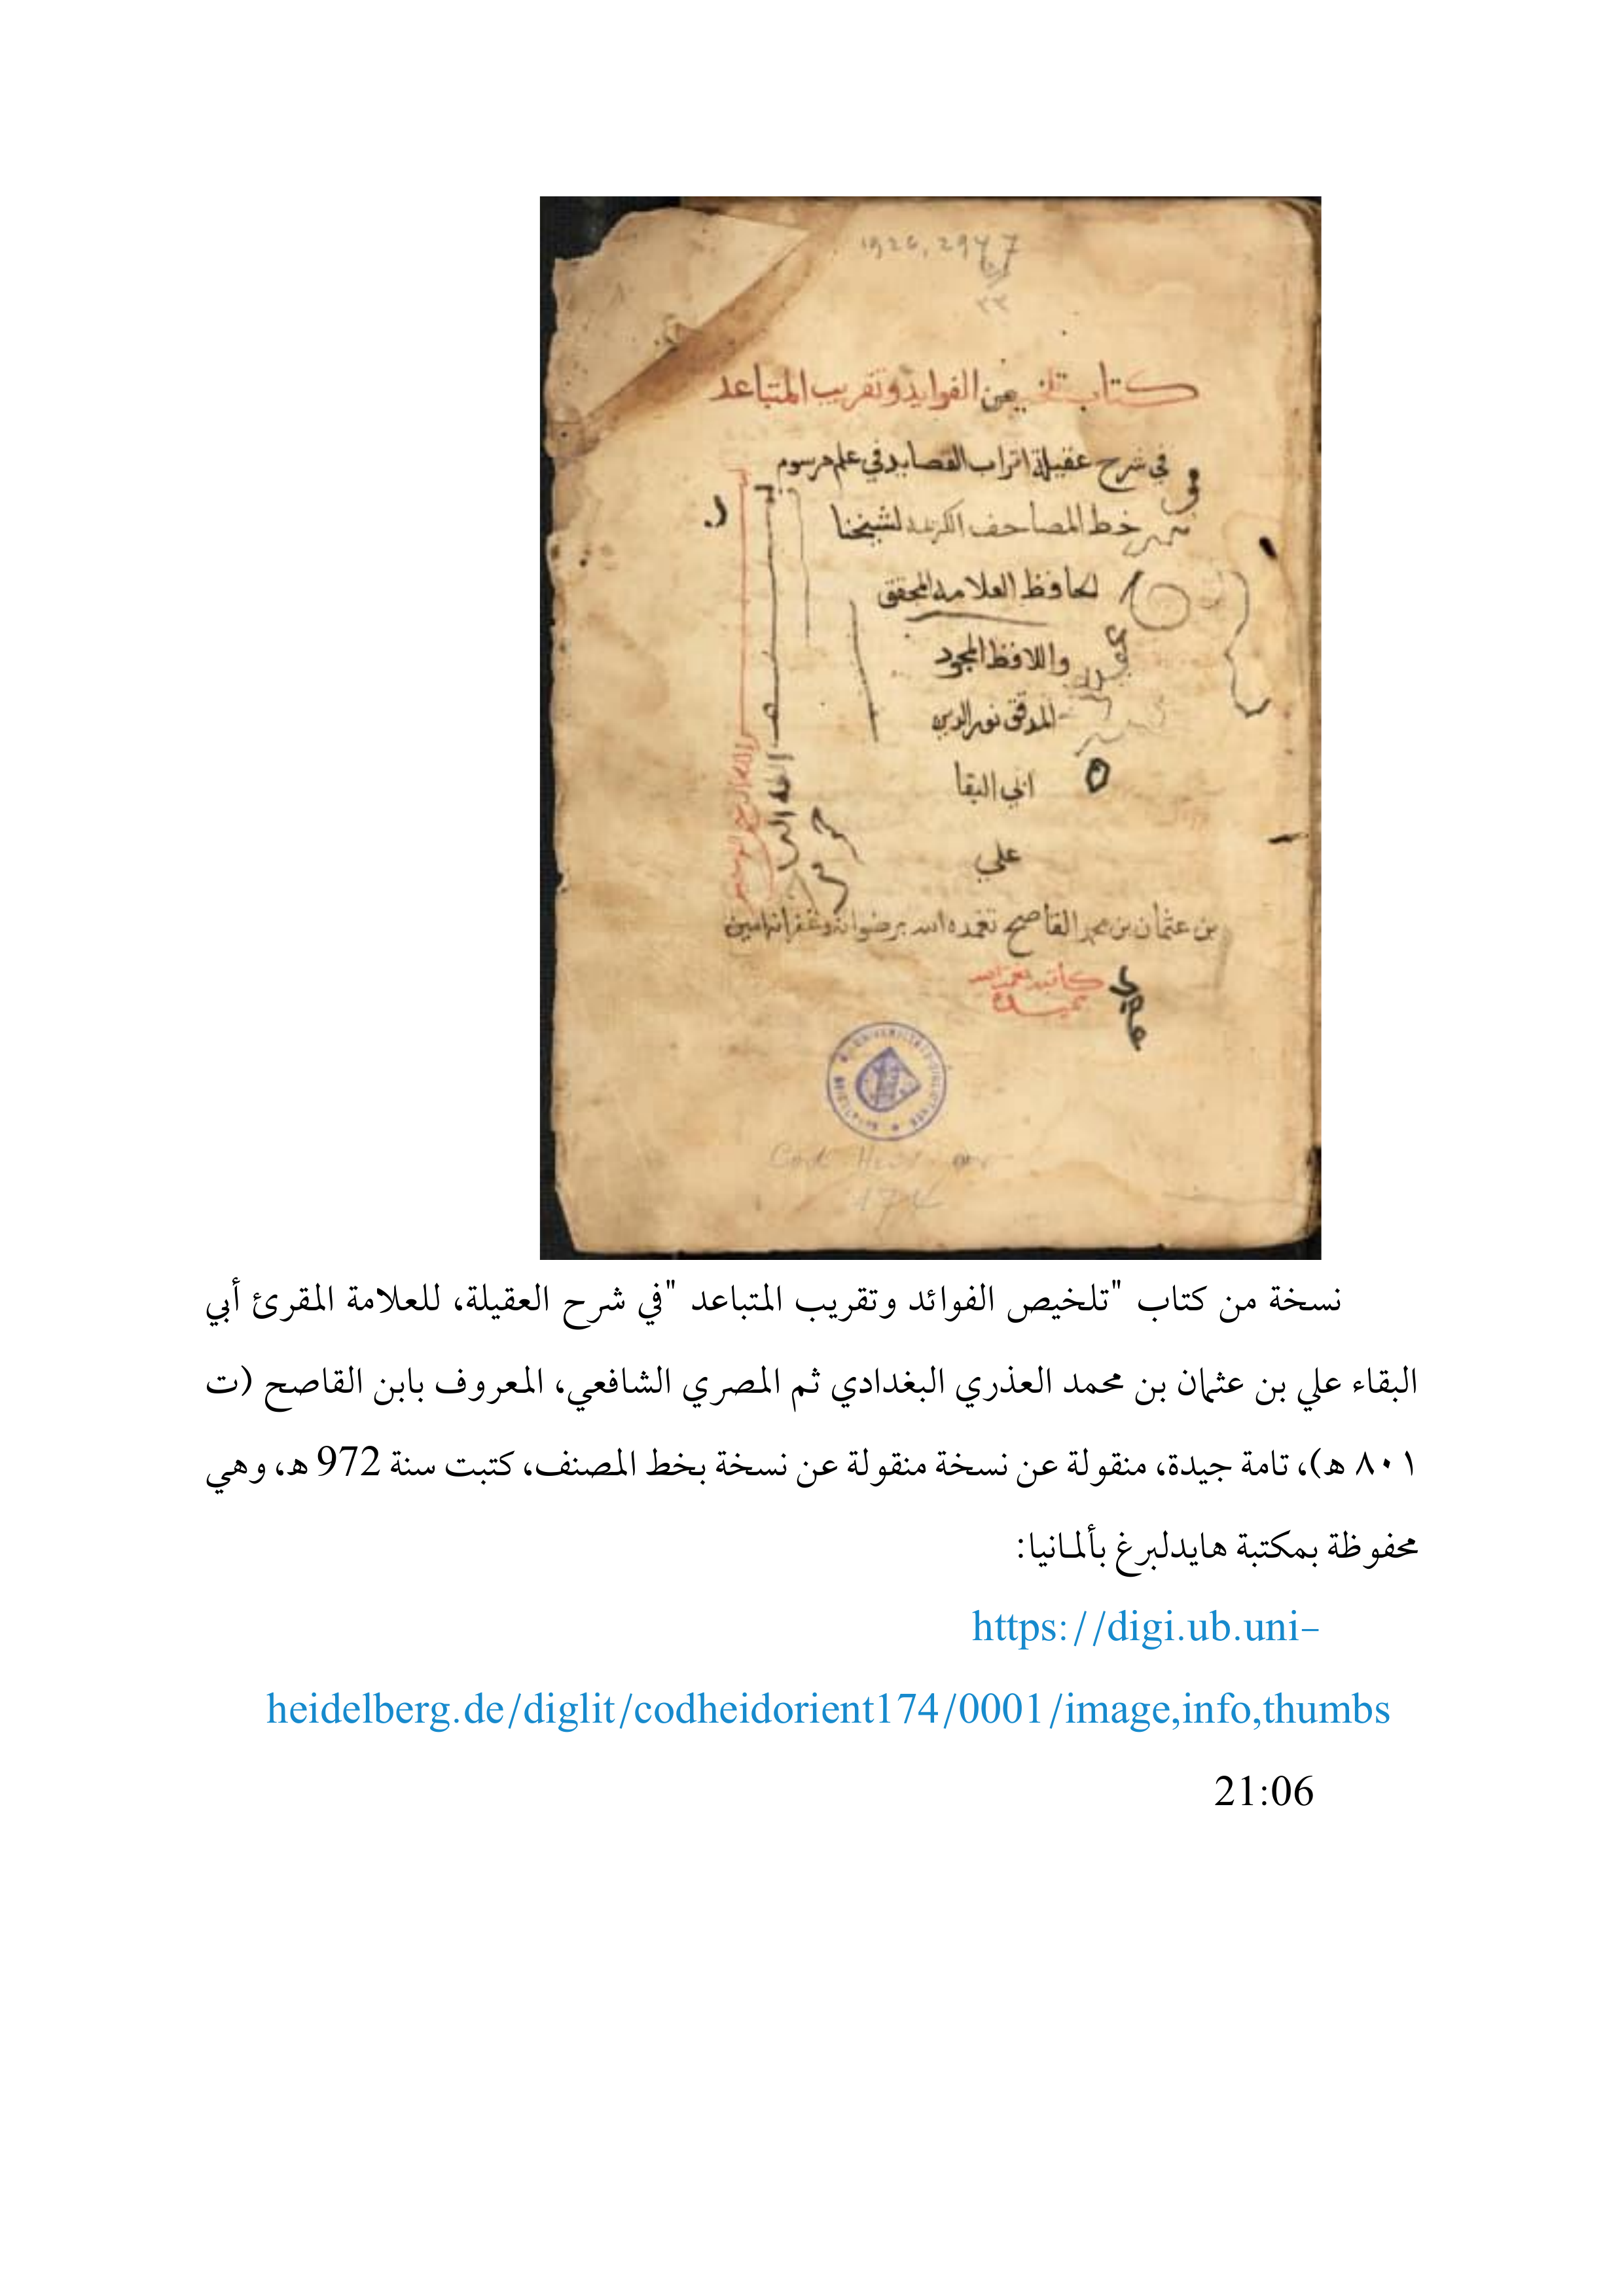 1926, 2947
٣٢
كتاب تلخيص الفوايد وتقريب المتباعد
في شرح عقيلة اتراب القصايد في علم مرسوم
خط المصاحف الكريمه لشيخنا
الحافظ العلامه المحقق
واللافظ المجود
المدقق نور الدين
ابي البقا
علي
بن عثمان بن محمد القاصح تغمده الله برضوانه وغفرانه امين
Cod. Heid. or
174
نسخة من كتاب "تلخيص الفوائد وتقريب المتباعد "في شرح العقيلة، للعلامة المقرئ أبي
البقاء علي بن عثمان بن محمد العذري البغدادي ثم المصري الشافعي، المعروف بابن القاصح (ت
٨٠١ هـ)، تامة جيدة، منقولة عن نسخة منقولة عن نسخة بخط المصنف، كتبت سنة 972 هـ، وهي
محفوظة بمكتبة هايدلبرغ بألمانيا:
https://digi.ub.uni-
heidelberg.de/diglit/codheidorient174/0001/image,info,thumbs
21:06